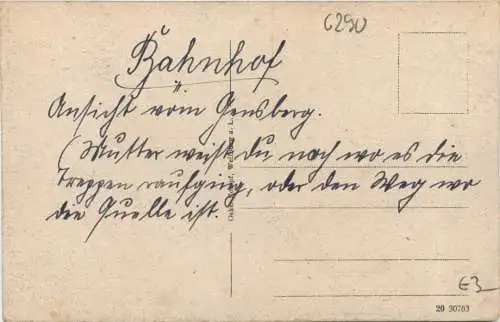 6290
Bahnhof
Ansicht vom Gensberg.
(Mutter weist du noch wo es die
Treppen raufging, oder den Weg wo
die Quelle ist.
E3
20 30703